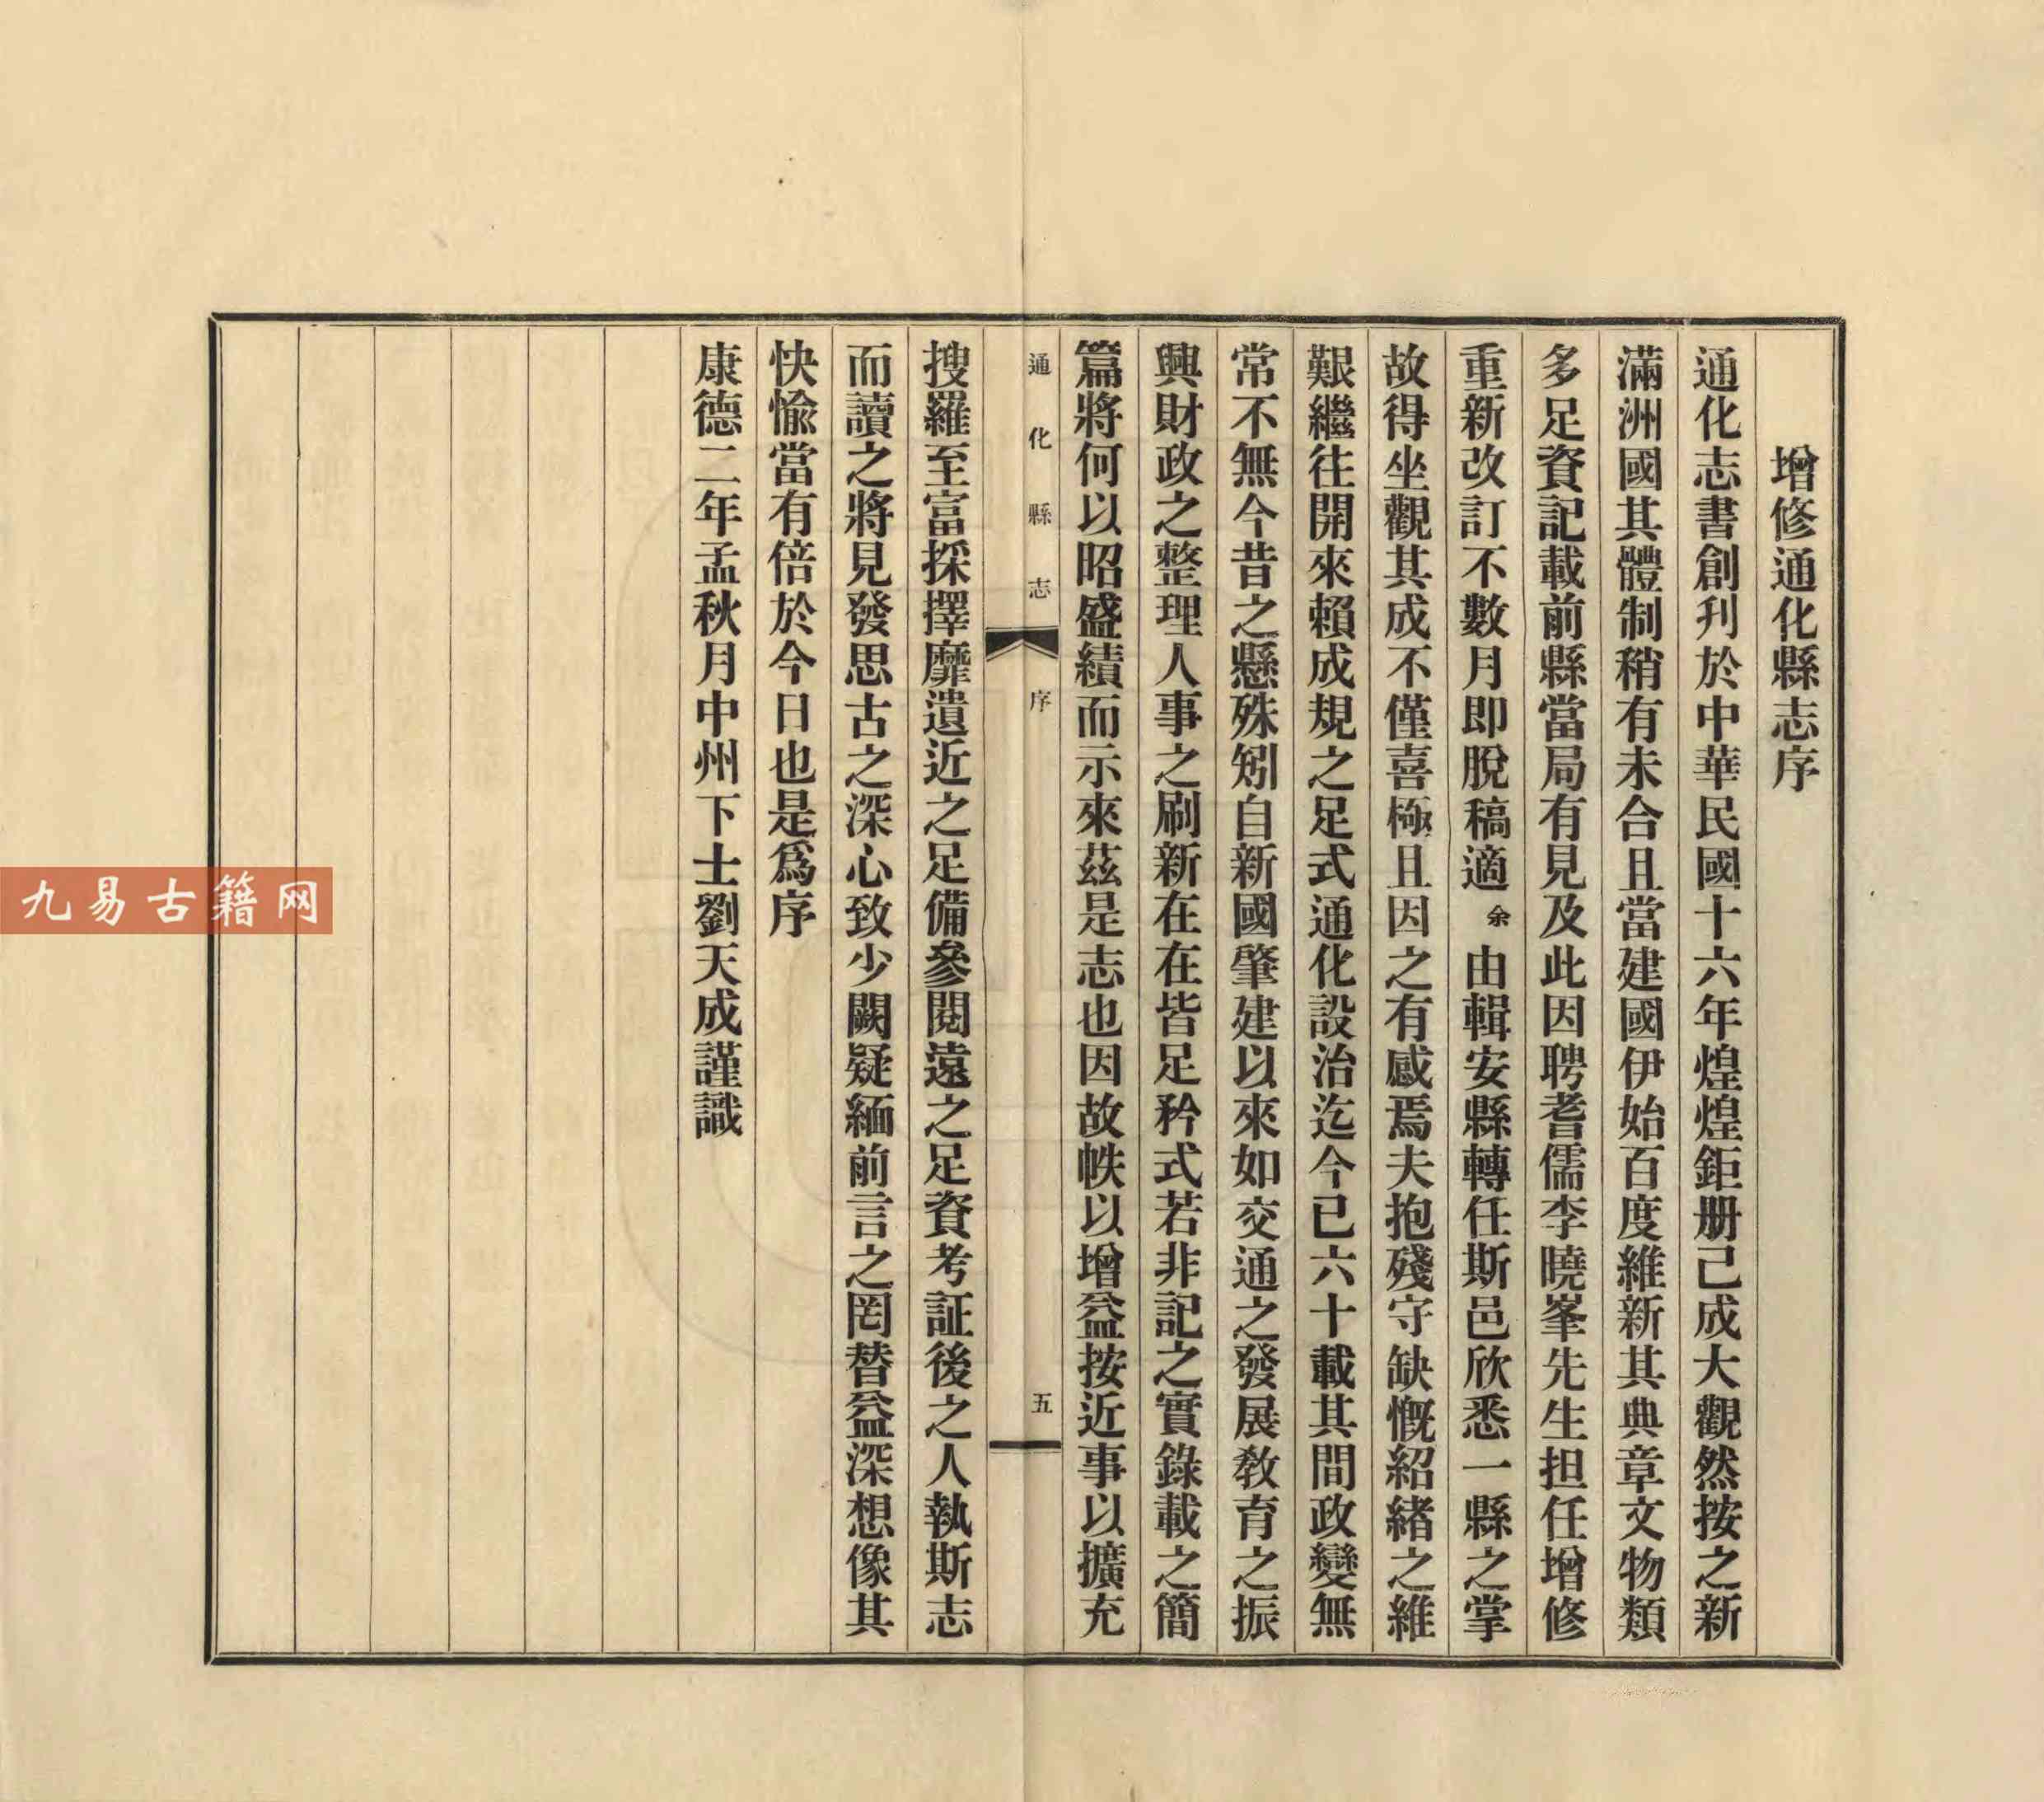 增修通化縣志序
通化志書創刋於中華民國十六年煌煌鉅册己成大觀然按之新
滿洲國其體制稍有未合且當建國伊始百度維新其典章文物類
多足資記載前縣當局有見及此因聘耆儒李曉峯先生担任增修
重新改訂不數月即脫稿適余由輯安縣轉任斯邑欣悉一縣之掌
故得坐觀其成不僅喜極且因之有感焉夫抱殘守缺慨紹緒之維
艱繼往開來賴成規之足式通化設治迄今已六十載其間政變無
常不無今昔之懸殊矧自新國肇建以來如交通之發展敎育之振
興財政之整理人事之刷新在在皆足矜式若非記之實錄載之簡
篇將何以昭盛績而示來茲是志也因故帙以增益按近事以擴充
通化縣志
序
五
搜羅至富採擇靡遺近之足備參閱遠之足資考証後之人執斯志
而讀之將見發思古之深心致少闕疑緬前言之罔替益深想像其
快愉當有倍於今日也是爲序
康德二年孟秋月中州下士劉天成謹識
九易古籍网